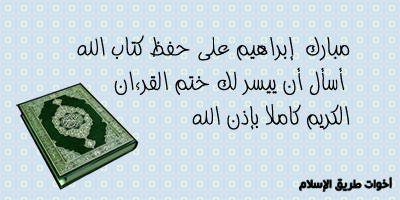 مبارك إبراهيم على حفظ كتاب الله
أسأل أن ييسر لك ختم القرءان
الكريم كاملا بإذن الله
أخوات طريق الإسلام